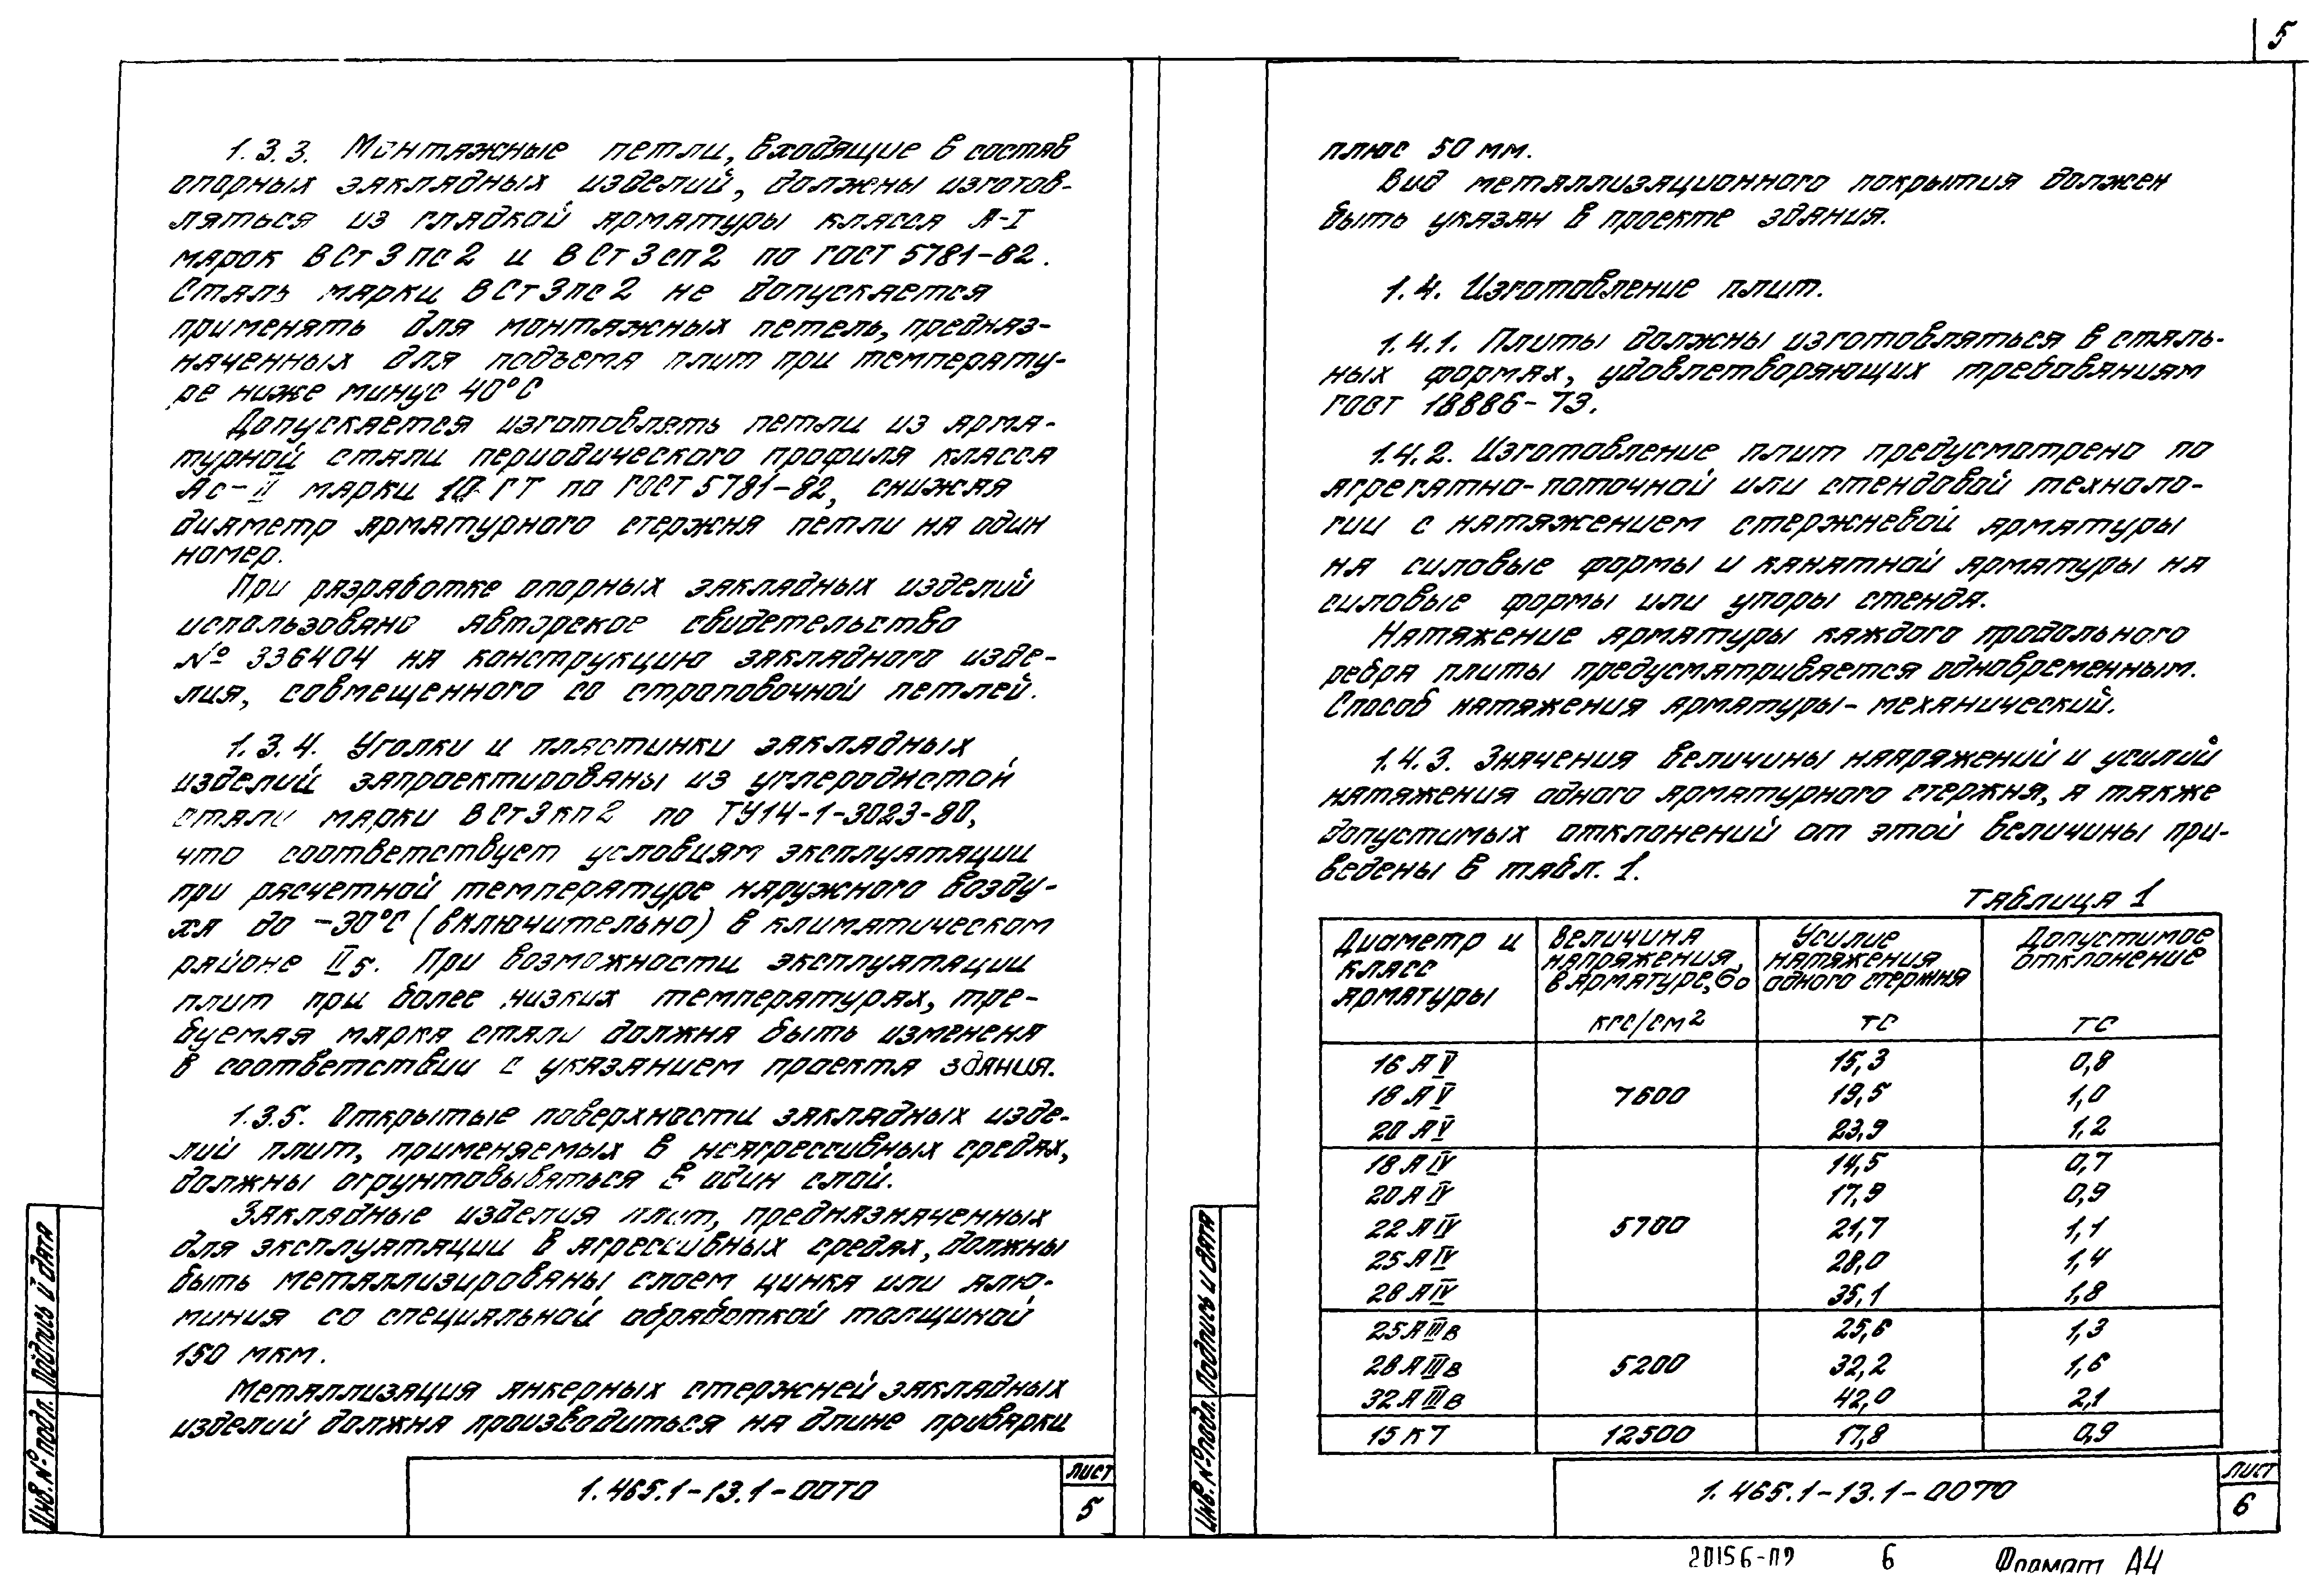 5
1.3.3. Монтажные петли, входящие в состав
опорных закладных изделий, должны изготов-
ляться из гладкой арматуры класса А-I
марок ВСт3пс2 и ВСт3сп2 по ГОСТ 5781-82.
Сталь марки ВСт3пс2 не допускается
применять для монтажных петель, предназ-
наченных для подъема плит при температу-
ре ниже минус 40°С
Допускается изготовлять петли из арма-
турной стали периодического профиля класса
Ас-II марки 10ГТ по ГОСТ 5781-82, снижая
диаметр арматурного стержня петли на один
номер.
При разработке опорных закладных изделий
использовано авторское свидетельство
№ 336404 на конструкцию закладного изде-
лия, совмещенного со строповочной петлей.
1.3.4. Уголки и пластинки закладных
изделий запроектированы из углеродистой
стали марки ВСт3кп2 по ТУ14-1-3023-80,
что соответствует условиям эксплуатации
при расчетной температуре наружного возду-
ха до -30°С (включительно) в климатическом
районе II5. При возможности эксплуатации
плит при более низких температурах, тре-
буемая марка стали должна быть изменена
в соответствии с указанием проекта здания.
1.3.5. Открытые поверхности закладных изде-
лий плит, применяемых в неагрессивных средах,
должны огрунтовываться в один слой.
Закладные изделия плит, предназначенных
для эксплуатации в агрессивных средах, должны
быть металлизированы слоем цинка или алю-
миния со специальной обработкой толщиной
150 мкм.
Металлизация анкерных стержней закладных
изделий должна производиться на длине приварки
1.465.1-13.1-00ТО
лист
5
Инв. № подл. Подпись и дата
плюс 50 мм.
Вид металлизационного покрытия должен
быть указан в проекте здания.
1.4. Изготовление плит.
1.4.1. Плиты должны изготовляться в сталь-
ных формах, удовлетворяющих требованиям
ГОСТ 18886-73.
1.4.2. Изготовление плит предусмотрено по
агрегатно-поточной или стендовой техноло-
гии с натяжением стержневой арматуры
на силовые формы и канатной арматуры на
силовые формы или упоры стенда.
Натяжение арматуры каждого продольного
ребра плиты предусматривается одновременным.
Способ натяжения арматуры - механический.
1.4.3. Значения величины напряжений и усилий
натяжения одного арматурного стержня, а также
допустимых отклонений от этой величины при-
ведены в табл. 1.
Таблица 1
Диаметр и класс арматуры | Величина напряжения в арматуре, б0 кгс/см2 | Усилие натяжения одного стержня тс | Допустимое отклонение тс
16 АV 15,3 0,8
18 АV 7600 19,5 1,0
20 АV 23,9 1,2
18 АIV 14,5 0,7
20 АIV 17,9 0,9
22 АIV 5700 21,7 1,1
25 АIV 28,0 1,4
28 АIV 35,1 1,8
25 АIIIв 25,6 1,3
28 АIIIв 5200 32,2 1,6
32 АIIIв 42,0 2,1
15 К7 12500 17,8 0,9
1.465.1-13.1-00ТО
лист
6
Инв. № подл. Подпись и дата
20156-09 6 Формат А4